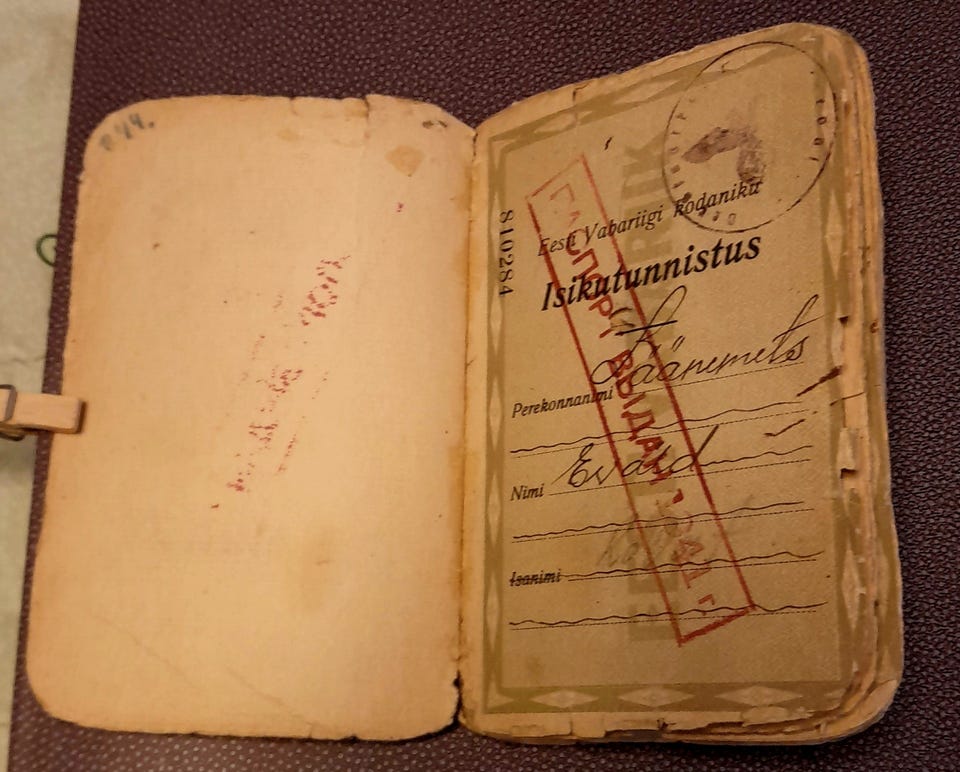 810284
Eesti Vabariigi kodaniku
Isikutunnistus
Perekonnanimi Säänemets
Nimi Evald
Isanimi
ПАСПОРТ ВЫДАН 1941 г.